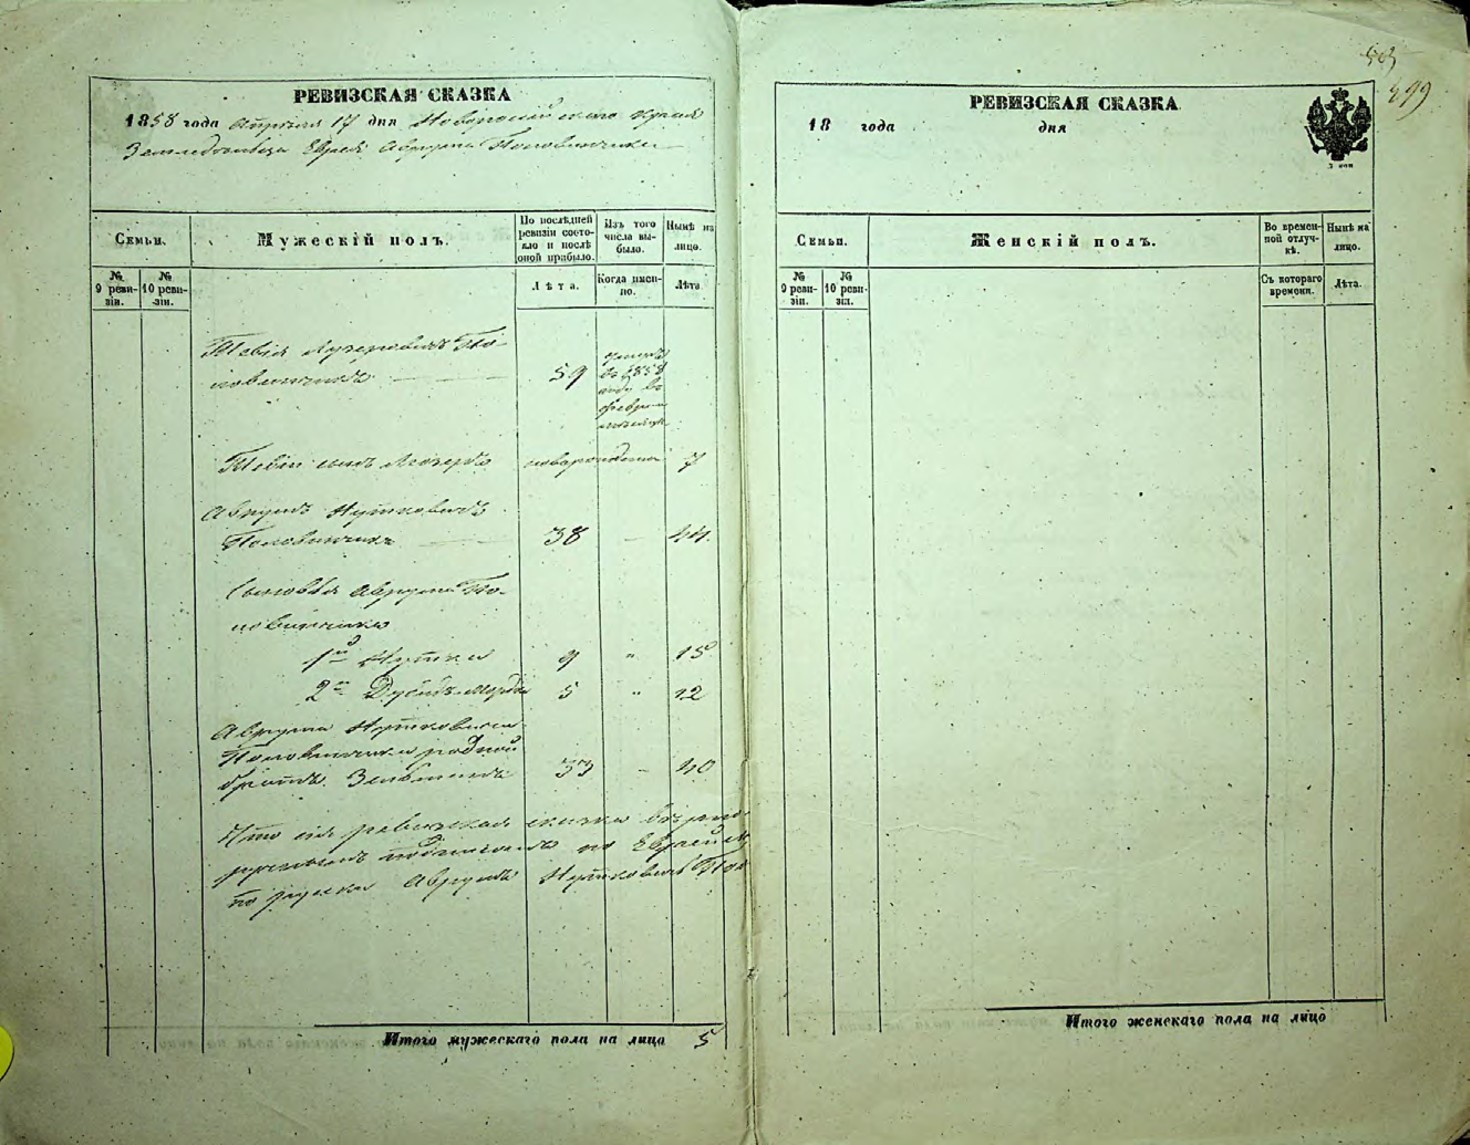 РЕВИЗСКАЯ СКАЗКА
1858 года Апреля 17 дня
Земледельца Еврея Аврума Половинчика
Семьи.
Мужескій полъ.
По послѣдней ревизіи состояло и послѣ оной прибыло.
Изъ того числа выбыло.
Нынѣ на лицо.
№ 9 ревизіи.
№ 10 ревизіи.
Лѣта.
Когда именно.
Лѣта
Тевія Лузеровичъ По-
ловинчикъ 59
въ 1858
году въ
Тевіи сынъ Лейзеръ новорожденный 7
Аврумъ Нутковичъ
Половинчикъ 38 — 44.
Сыновья Аврума По-
ловинчика
1й Нутка 9 " 15
2й 5 " 12
Аврума Нутковича
Половинчика родной
братъ 33 — 40
Что сія ревизская сказка
по Еврейски
по руски Аврумъ Нутковичъ Пол
Итого мужескаго пола на лицо 5
503
499
РЕВИЗСКАЯ СКАЗКА
18 года дня
3 коп
Семьи.
Женскій полъ.
Во временной отлучкѣ.
Нынѣ на лицо.
№ 9 ревизіи.
№ 10 ревизіи.
Съ котораго времени.
Лѣта.
Итого женскаго пола на лицо